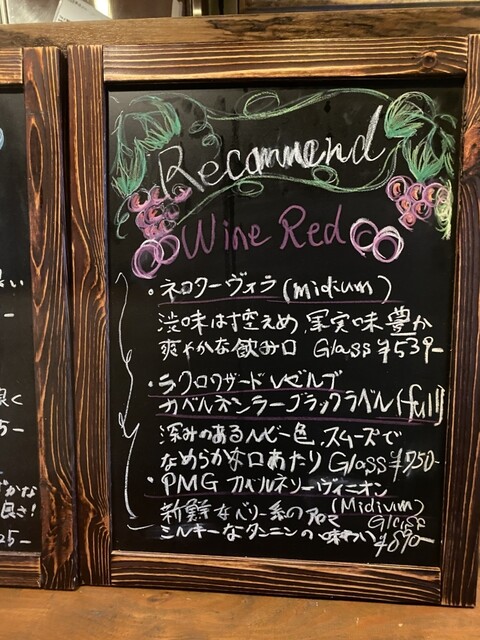 Recommend
Wine Red
・ネロダーヴォラ (midium)
渋味は控えめ、果実味豊か
爽やかな飲み口 Glass ¥539-
・ラクロワザードレゼルブ
カベルネシラーブラックラベル(full)
深みのあるルビー色、スムーズで
なめらかな口あたり Glass ¥750-
・PMG カベルネソーヴィニオン
(Midium)
新鮮なベリー系の
Glass
ミルキーなタンニンの味わい ¥890-
い
-
良く
5-
かな
良さ!
25-